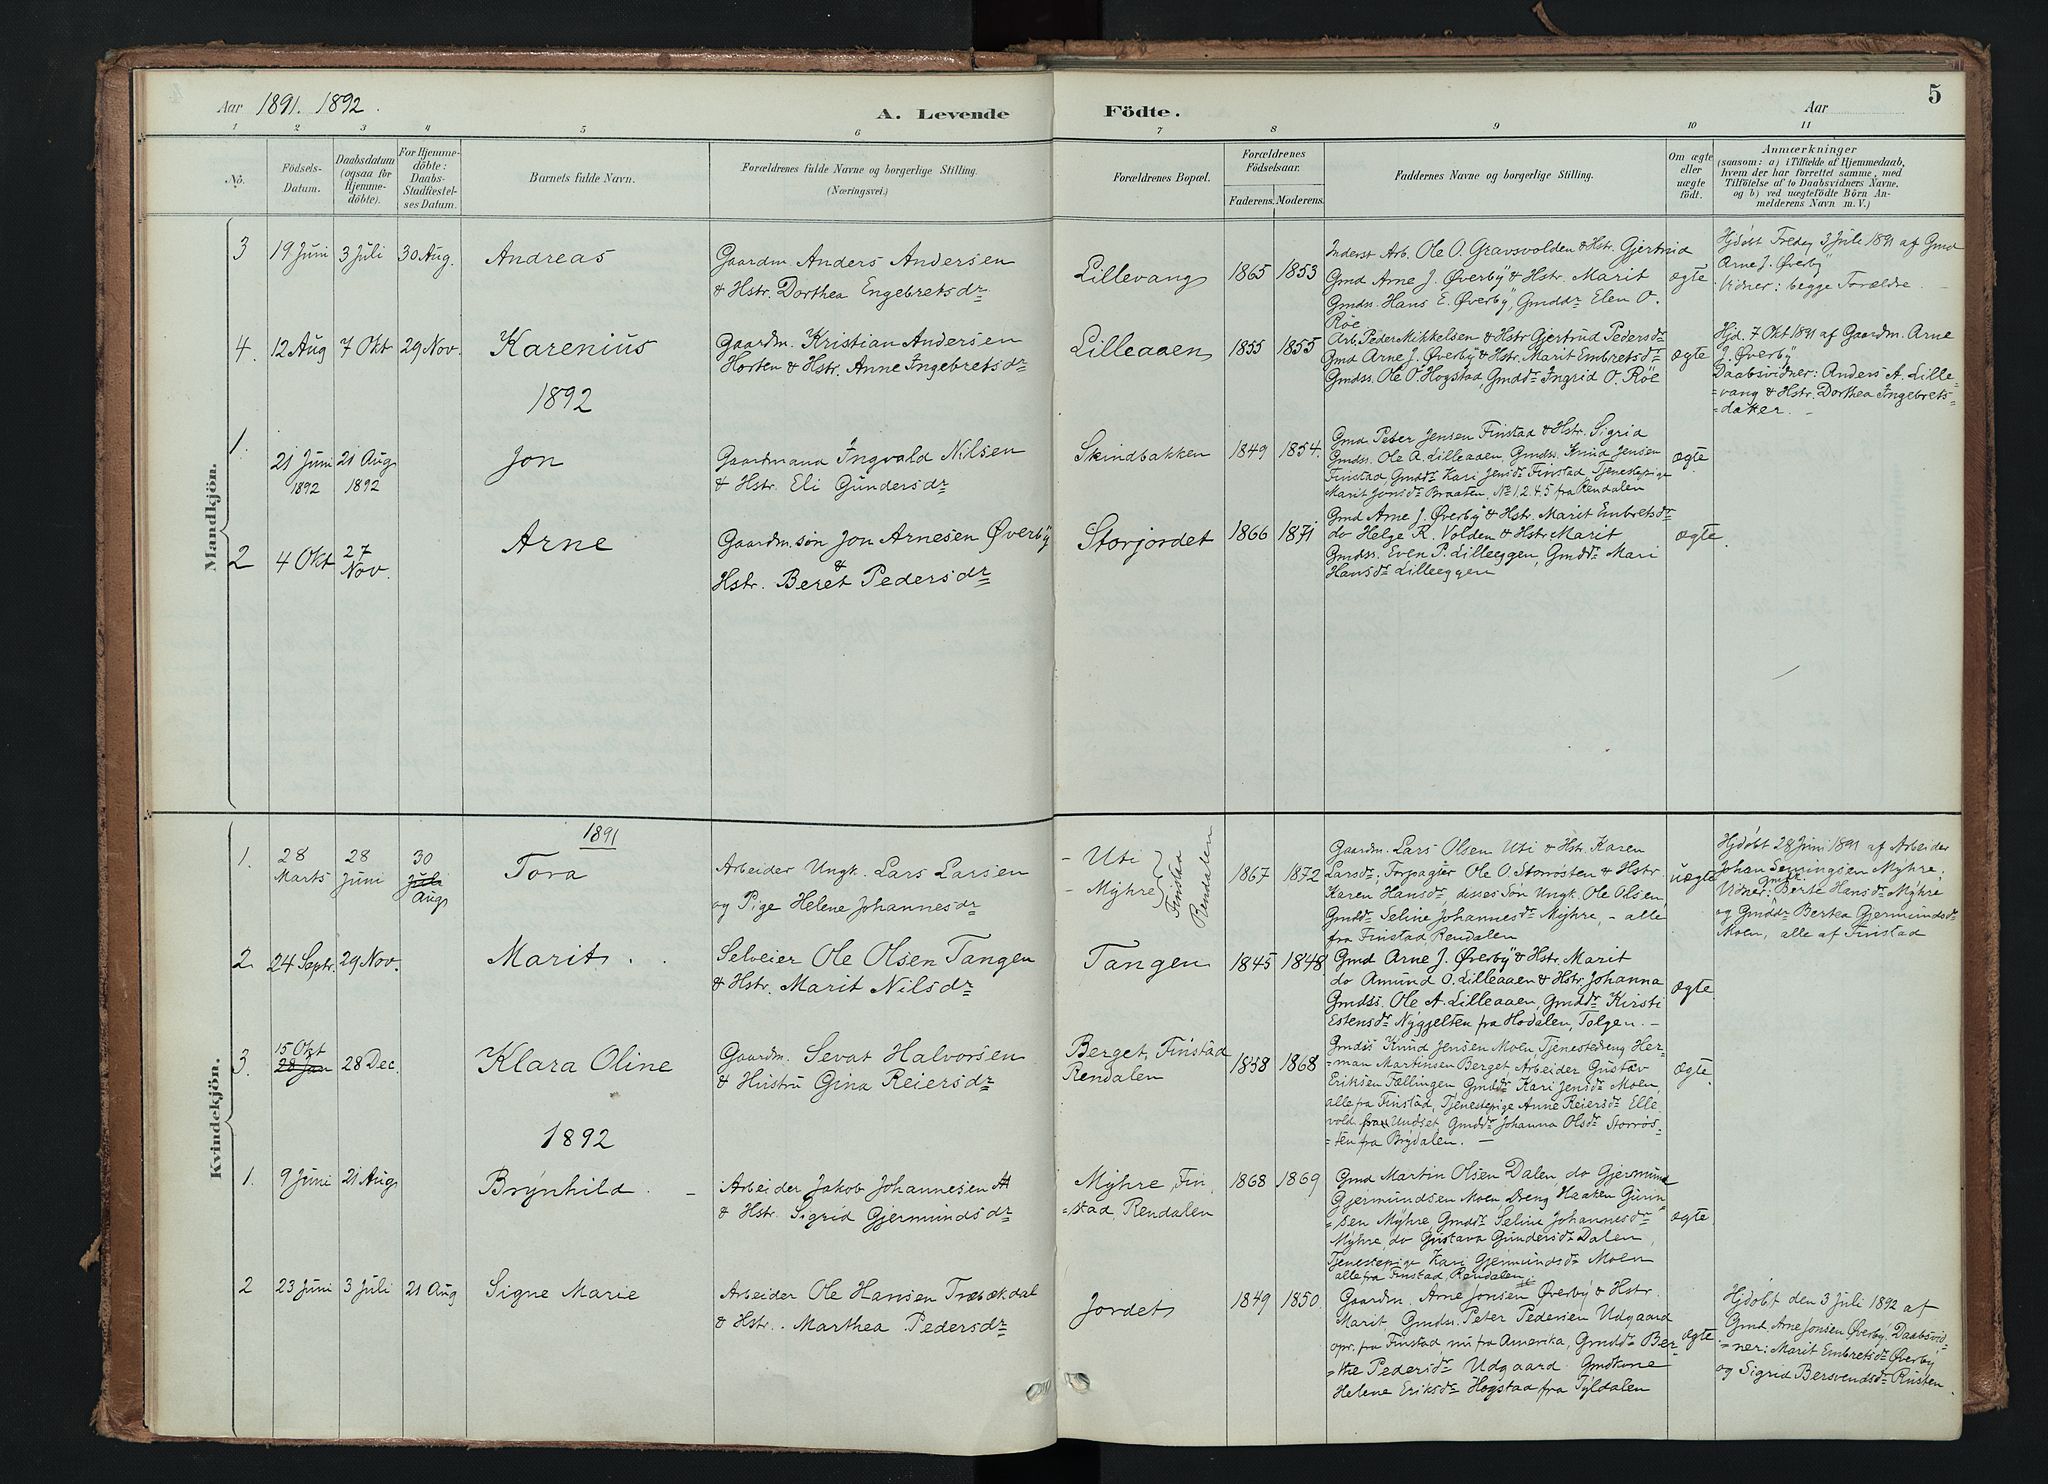 Aar 1891. 1892.
A. Levende Födte.
Aar
5
1 2 3 4 5 6 7 8 9 10 11
Nö.
Födsels-Datum.
Daabsdatum (ogsaa for Hjemmedöbte).
For Hjemmedöbte: Daabs-Stadfestelses Datum.
Barnets fulde Navn.
Forældrenes fulde Navne og borgerlige Stilling.
(Næringsvei.)
Forældrenes Bopæl.
Forældrenes Födselsaar.
Faderens. Moderens.
Faddernes Navne og borgerlige Stilling.
Om ægte eller uægte födt.
Anmærkninger
(saasom: a) i Tilfælde af Hjemmedaab,
hvem der har forrettet samme, med
Tilföielse af to Daabsvidners Navne.
og b) ved uægtefödte Börn Anmelderens Navn m. V.)
Mandkjön.
3 19 Juni 3 Juli 30 Aug. Andreas
Gaardm. Anders Andersen
& Hstr. Dorthea Engebretsdr
Lillevang 1865 1853
Inderst Arb. Ole O. Gravsvolden & Hstr. Gjertrud
Gmd Arne J. Øverby & Hstr. Marit
Gmdss. Hans E. Øverby, Gmddr Elen O.
Røe
ægte
Hjdøbt Fredag 3 Juli 1891 af Gmd
Arne J. Øverby
Vidner: begge Forældre.
4. 12 Aug 7 Okt 29 Nov. Karenius
Gaardm. Kristian Andersen
Horten & Hstr. Anne Ingebretsdr
Lilleaaen 1855 1855
Arb. Peder Mikkelsen & Hstr Gjertrud Pedersdr
Gmd Arne J. Øverby & Hstr. Marit Embretsdr
Gmdss. Ole O. Hogstad, Gmddr Ingrid O. Røe
ægte
Hjd. 7 Okt 1891 af Gaardm. Arne
J. Øverby
Daabsvidner: Anders A. Lille-
=vang & Hstr. Dorthea Ingebrets-
=datter.
1892
1. 21 Juni 1892 21 Aug 1892 Jon
Gaardmand Ingvald Nilsen
& Hstr. Eli Gundersdr
Skindbakken 1849 1854.
Gmd Peter Jensen Finstad & Hstr. Sigrid
Gmdss. Ole A. Lilleaaen, Gmdss. Knud Jensen
Finstad, Gmddr Kari Jensdr Finstad, Tjenestepige
Marit Jonsdr Braaten, No 1.2.4.5 fra Rendalen
ægte
2 4 Okt 27 Nov. Arne
Gaardm.søn Jon Arnesen Øverby
&
Hstr. Beret Pedersdr
Storjordet 1866 1871
Gmd Arne J. Øverby & Hstr. Marit Embretsdr
do Helge R. Volden & Hstr Marit
Gmdss. Even P. Lilleeggen, Gmddr Mari
Hansdr Lilleeggen
ægte.
Kvindekjön.
1891
1. 28 Marts 28 Juni 30 Juli Aug Tora
Arbeider Ungk. Lars Larsen
og Pige Helene Johannesdr
- Uti
- Myhre
Finstad Rendalen
1867 1872
Gaardm. Lars Olsen Uti & Hstr. Karen
Larsdr; Forpagter Ole O. Storrøsten & Hstr
Karen Hansdr, disses Søn Ungk. Ole Olsen,
Gmddr Seline Johannesdr Myhre, - alle
fra Finstad, Rendalen
uægte
Hjdøbt 28 Juni 1891 af Arbeider
Myhre;
Vidner: Berte Hansdr Myhre
og Gmddr Bertea Gjermundsdr
Moen, alle af Finstad
2. 24 Septr. 29 Nov. Marit.
Selveier Ole Olsen Tangen
& Hstr. Marit Nilsdr
Tangen 1845 1848
Gmd Arne J. Øverby & Hstr. Marit
do Amund O. Lilleaaen & Hstr. Johanna
Gmdss. Ole A. Lilleaaen, Gmddr Kirsti
Estensdr Nygjelten fra Hodalen, Tolgen. -
ægte.
3. 15 Okt 28 Jan 28 Dec. Klara Oline
Gaardm. Sevat Halvorsen
& Hustru Gina Reiersdr
Berget, Finstad
Rendalen
1858 1868
Gmdss Knud Jensen Moen, Tjenestedreng Her-
=man Martinsen Berget, Arbeider Gustav
Eriksen Fællingen, Gmddr Kari Jensdr Moen,
alle fra Finstad, Tjenestepige Anne Reiersdr Elle-
vold fra Undset, Gmddr Johanna Olsdr Storrøs-
=ten fra Brydalen. -
ægte.
1892
1. 9 Juni 21 Aug Brynhild. -
Arbeider Jakob Johannesen
& Hstr. Sigrid Gjermundsdr
Myhre, Fin-
=stad, Rendalen
1868 1869
Gmd Martin Olsen Dalen, do Gjermund
Gjermundsen Moen, Dreng Haaken
=sen Myhre, Gmddr Seline Johannesdr
Myhre, do Gustava Gundersdr Dalen,
Tjenestepige Kari Gjermundsdr Moen
alle fra Finstad, Rendalen
ægte.
2 23 Juni 3 Juli 21 Aug Signe Marie
Arbeider Ole Hansen Træbækdal
& Hstr. Marthea Pedersdr
Jordet 1849 1850.
Gaardm. Arne Jonsen Øverby & Hstr.
Marit, Gmdss. Peter Pedersen Udgaard
opr. fra Finstad, nu fra Amerika, Gmddr Ber-
=the Pedersdr Udgaard. Gmdkone
Helene Eriksdr Hogstad fra Tyldalen
ægte
Hjdøbt den 3 Juli 1892 af
Gmd. Arne Jonsen Øverby. Daabsvid-
=ner: Marit Embretsdr Øverby
og Sigrid Bersvendsdr Rusten.